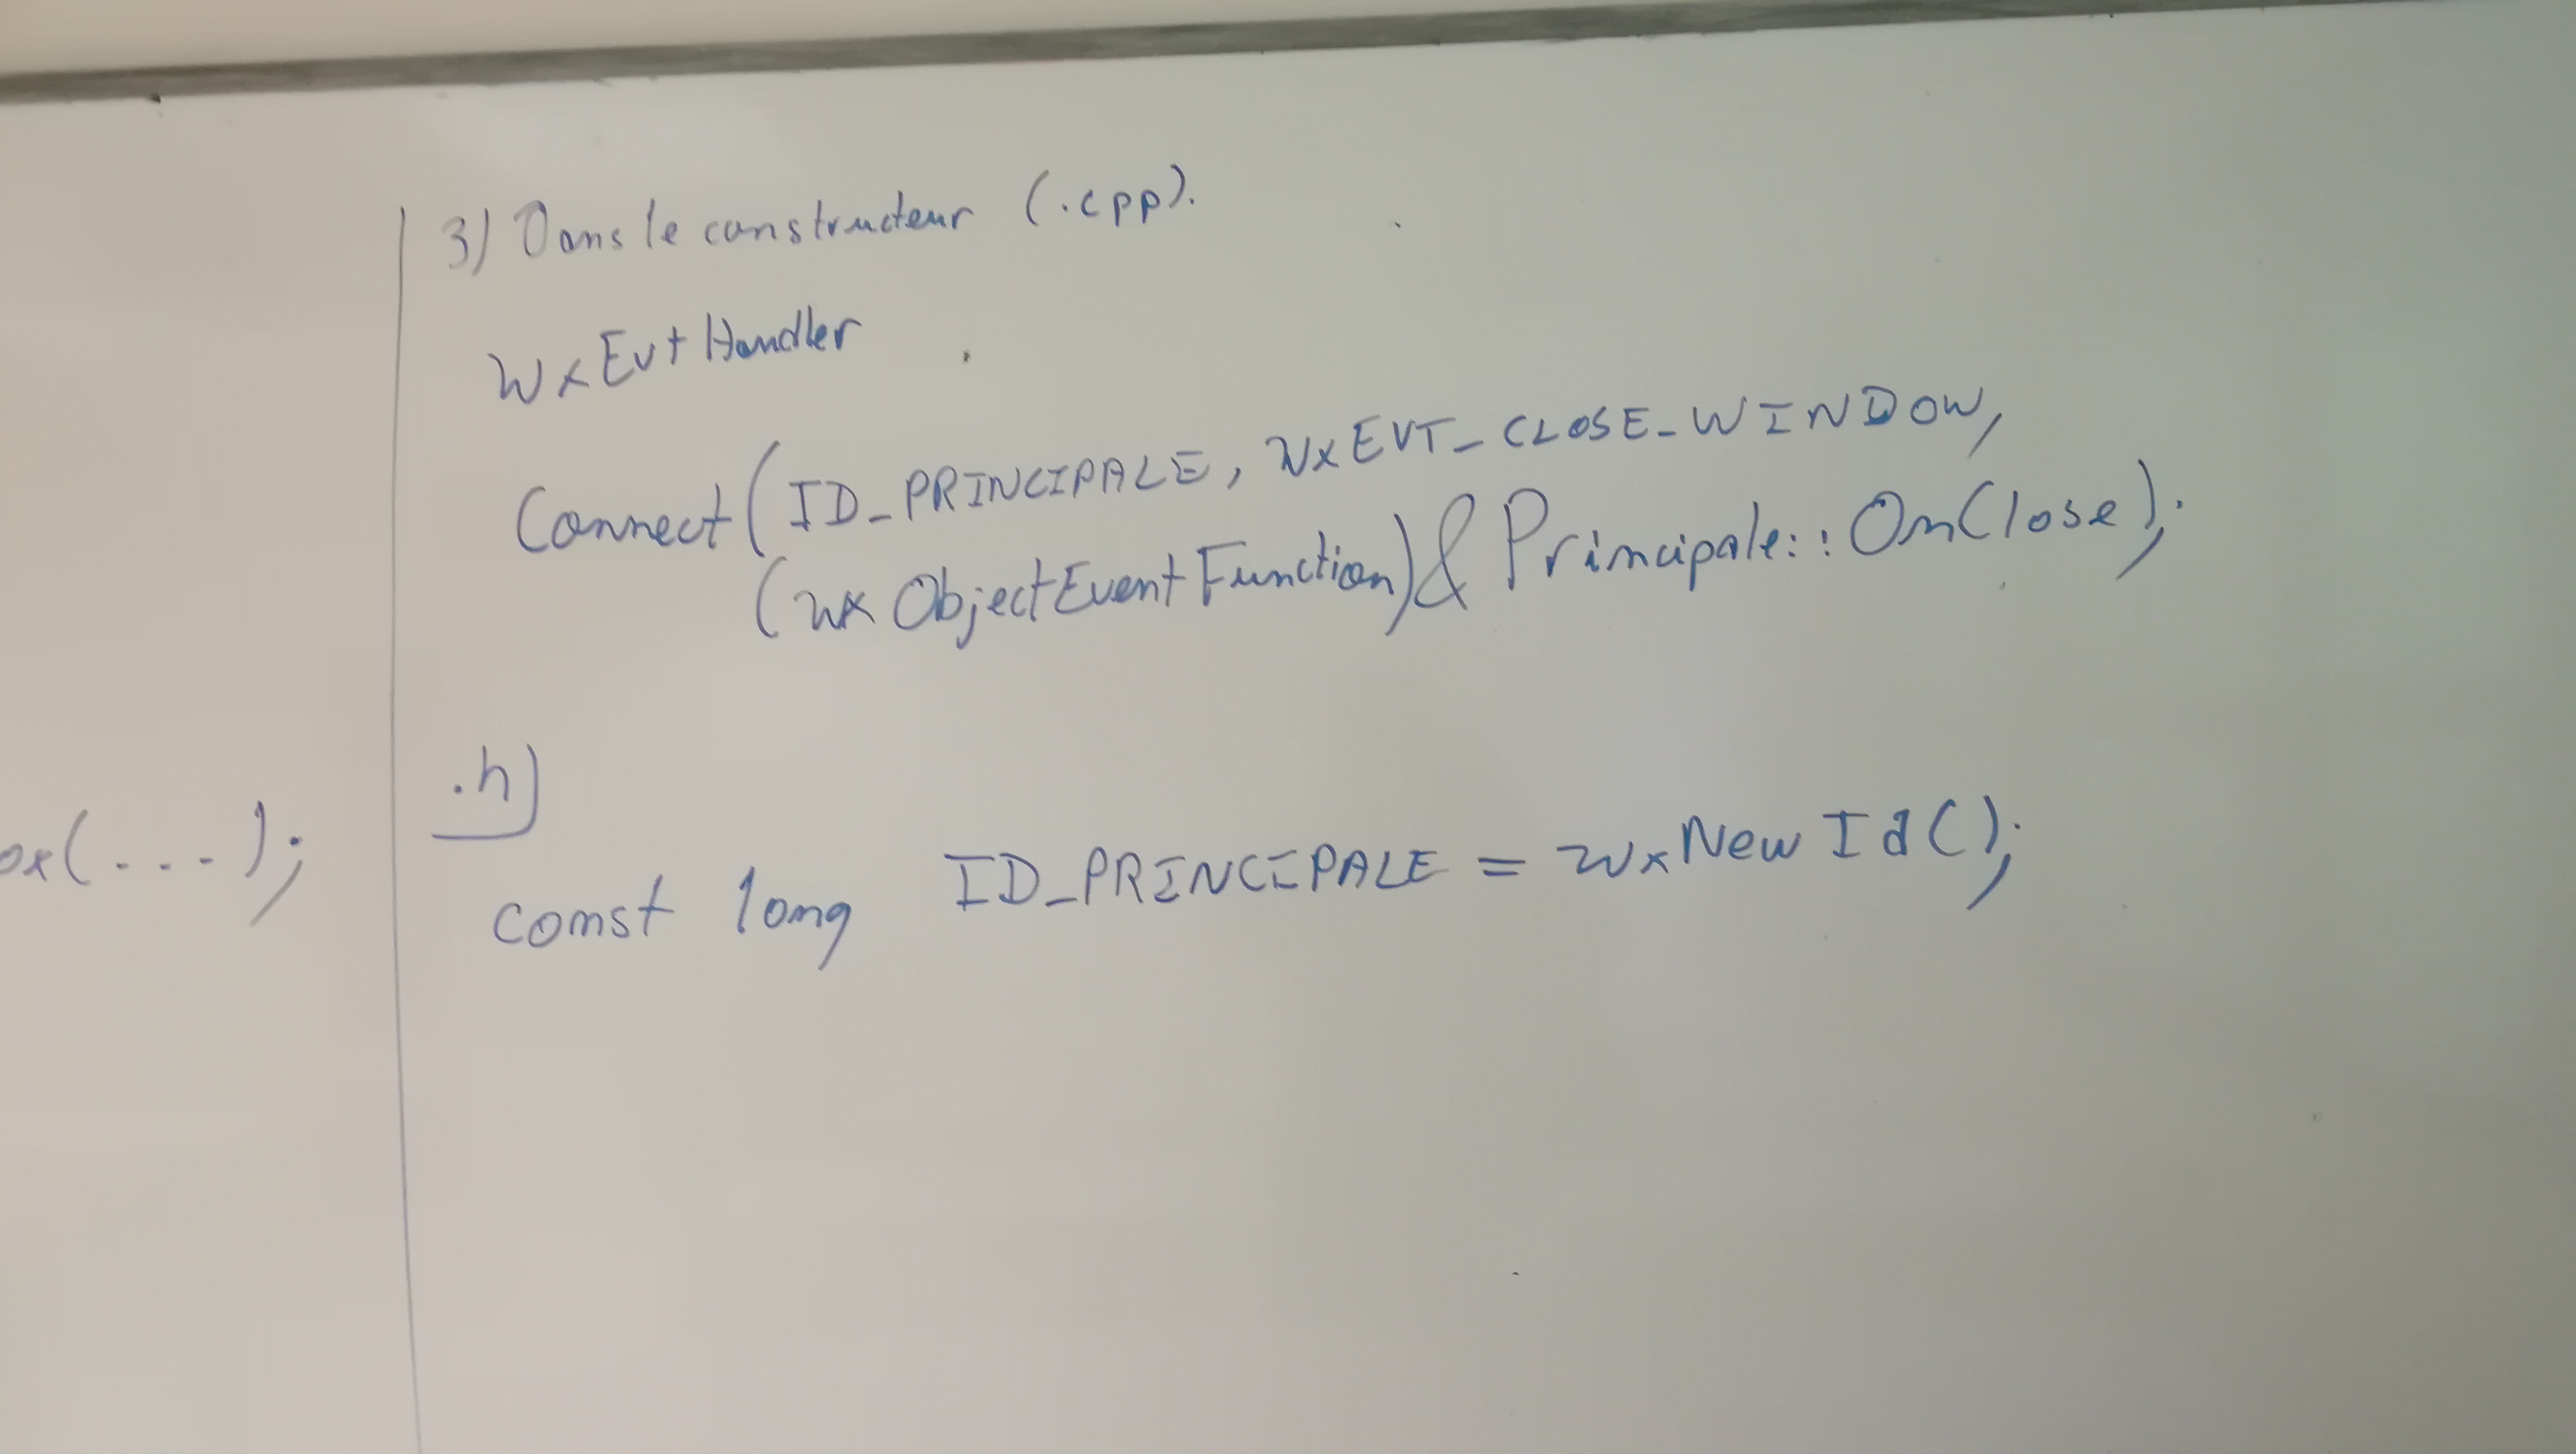 3) Dans le constructeur (.cpp).
wxEvtHandler
Connect(ID_PRINCIPALE, wxEVT_CLOSE_WINDOW,
(wxObjectEventFunction)&Principale::OnClose);
.h)
ox(...);
const long ID_PRINCIPALE = wxNewId();